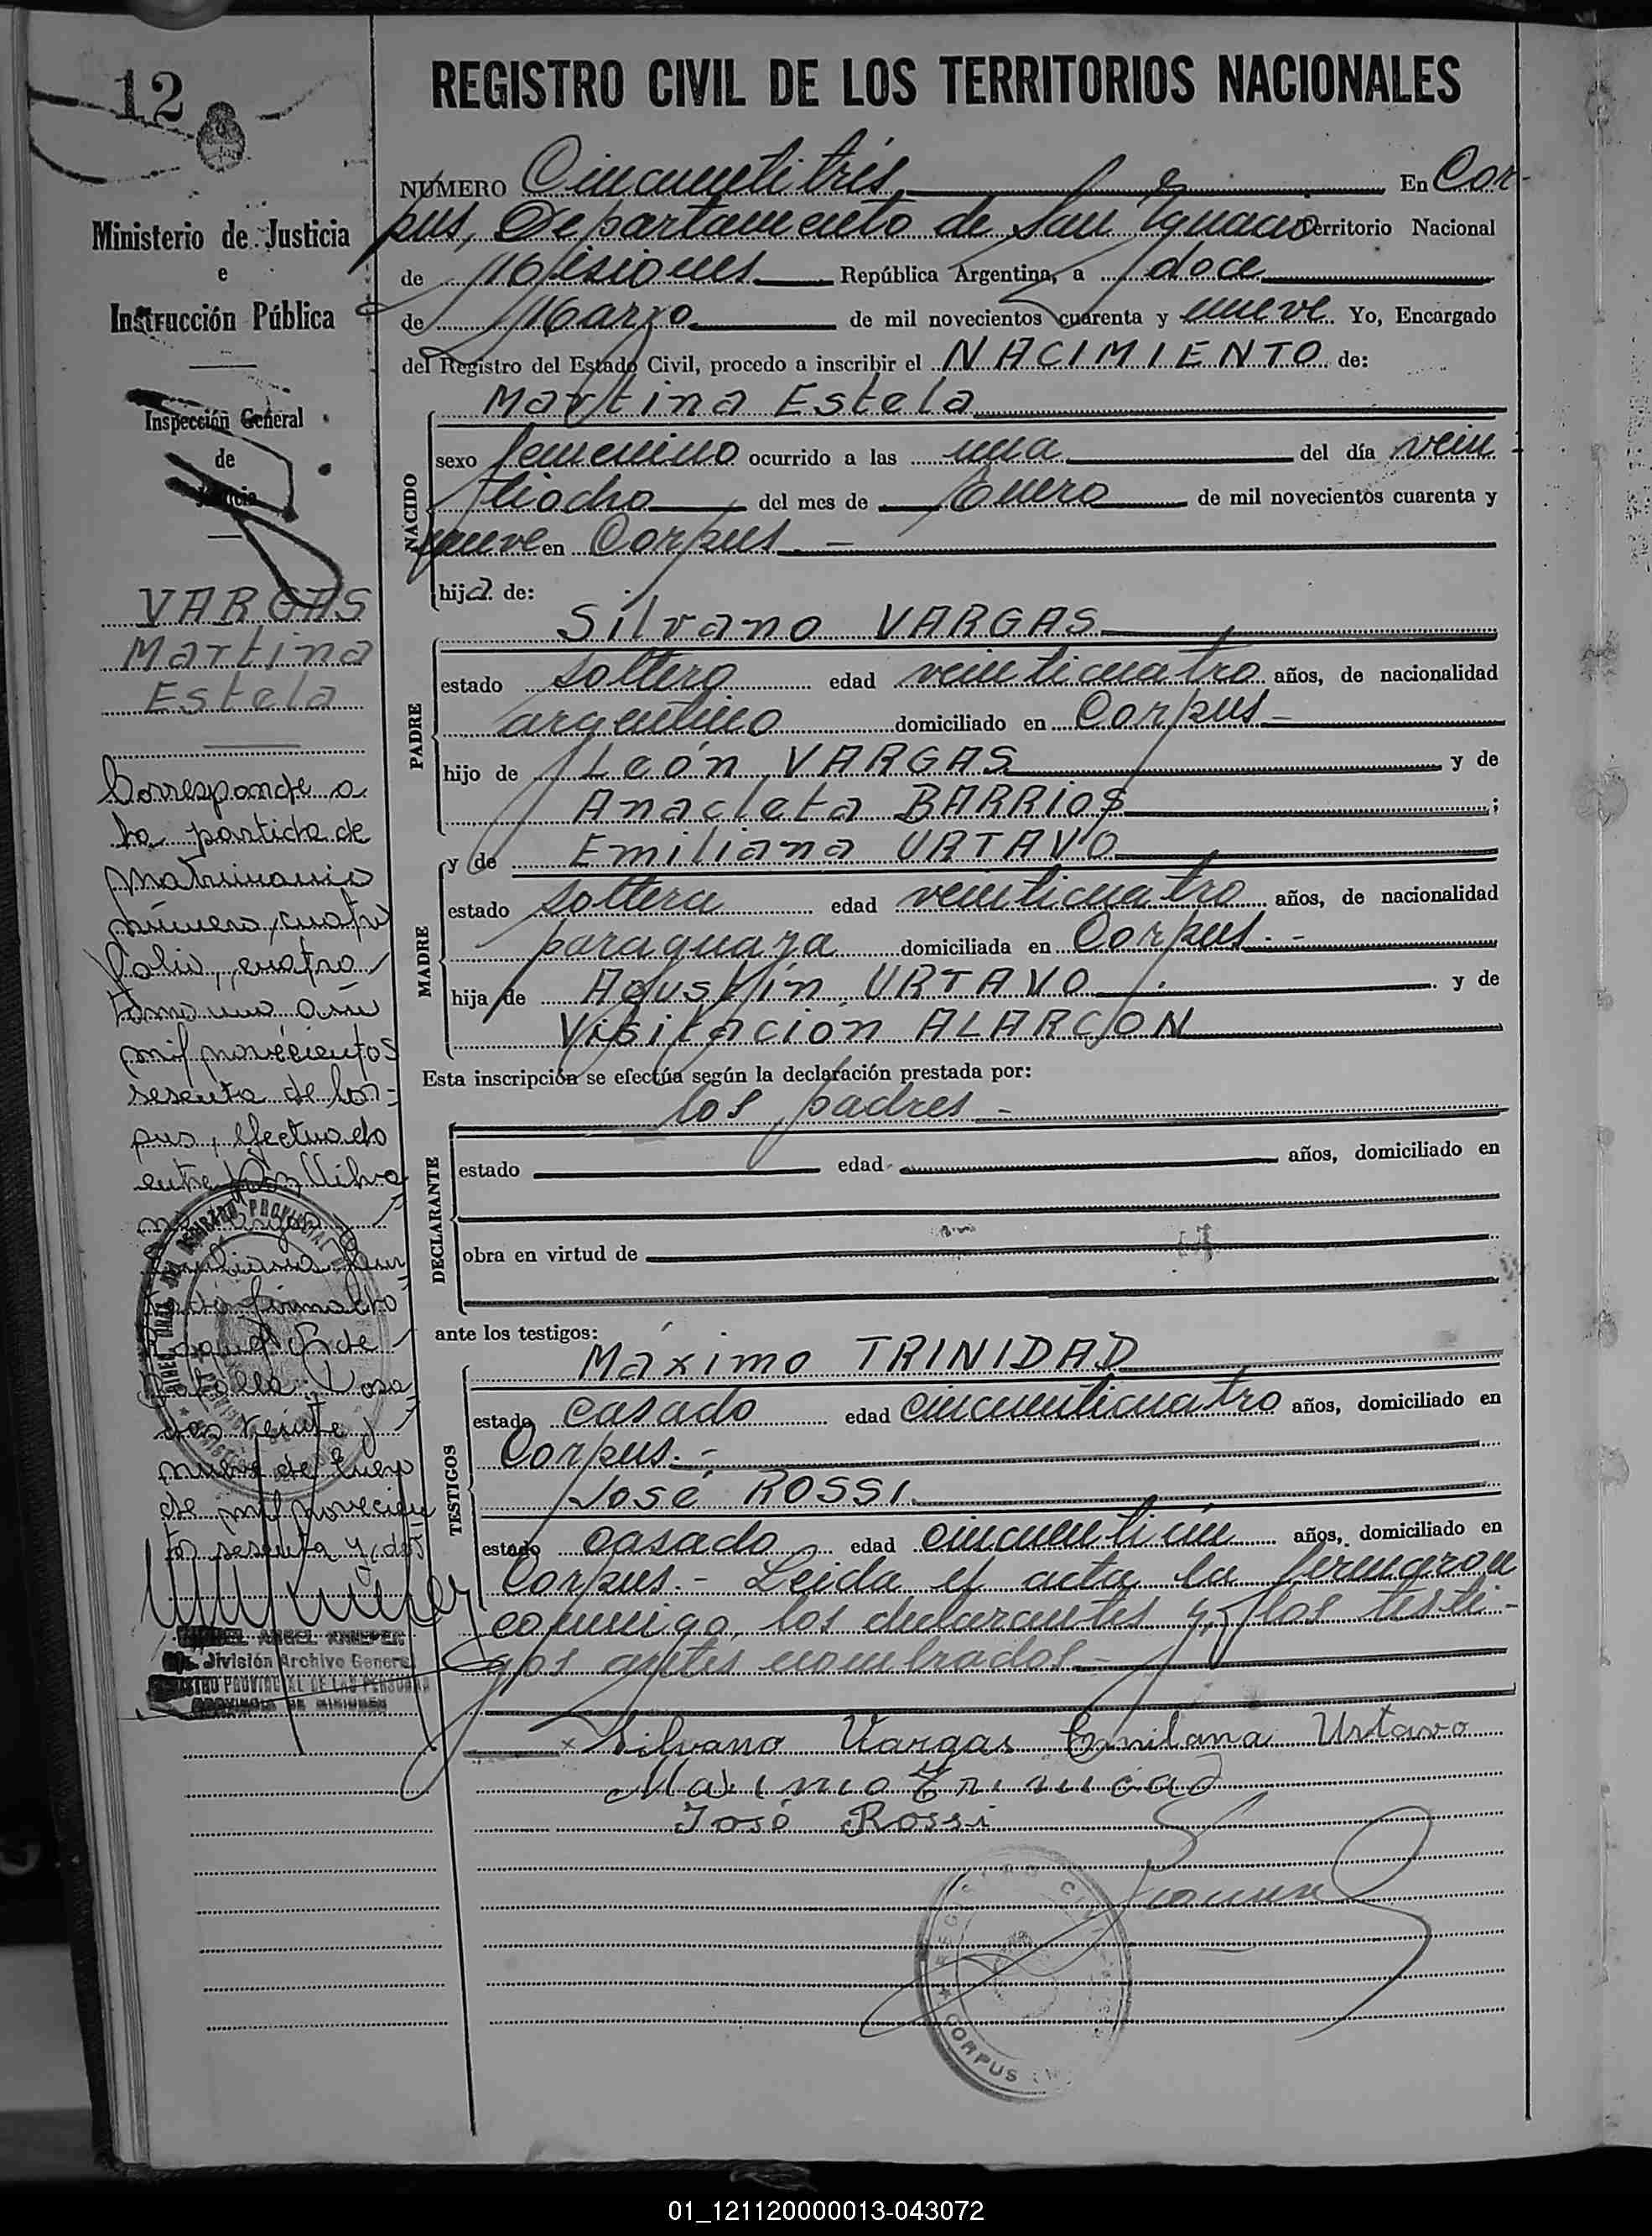 12
REGISTRO CIVIL DE LOS TERRITORIOS NACIONALES
Ministerio de Justicia
e
Instrucción Pública
Inspección General
de
Justicia
VARGAS
Martina
Estela
Corresponde a
la partida de
matrimonio
número cuatro
folio, cuatro
tomo uno año
mil novecientos
sesenta de Cor-
pus, efectuado
entre Don Silva
no Vargas
nueve de Enero
de mil novecien
tos sesenta y dos
División Archivo General
PROVINCIA DE MISIONES
NÚMERO Cincuentitrés En Cor-
pus, Departamento de San Ignacio Territorio Nacional
de Misiones República Argentina, a doce
de Marzo de mil novecientos cuarenta y nueve. Yo, Encargado
del Registro del Estado Civil, procedo a inscribir el NACIMIENTO de:
Martina Estela
NACIDO
sexo femenino ocurrido a las una del día vein-
tiocho del mes de Enero de mil novecientos cuarenta y
nueve en Corpus.-
hija de:
Silvano VARGAS
PADRE
estado soltero edad veinticuatro años, de nacionalidad
argentino domiciliado en Corpus-
hijo de León VARGAS y de
Anacleta BARRIOS ;
MADRE
y de Emiliana URTAVO
estado soltera edad veinticuatro años, de nacionalidad
paraguaya domiciliada en Corpus.-
hija de Agustín URTAVO y de
Visitación ALARCON
Esta inscripción se efectúa según la declaración prestada por:
los padres-
DECLARANTE
estado edad años, domiciliado en
obra en virtud de
ante los testigos:
Máximo TRINIDAD
TESTIGOS
estado casado edad cincuenticuatro años, domiciliado en
Corpus.-
José ROSSI
estado casado edad cincuentiún años, domiciliado en
Corpus.- Leida el acta la firmaron
conmigo, los declarantes y los testi-
gos antes nombrados-
Silvano Vargas Emilana Urtavo
Maximo Trinidad
José Rossi
REGISTRO CIVIL
CORPUS
01_121120000013-043072